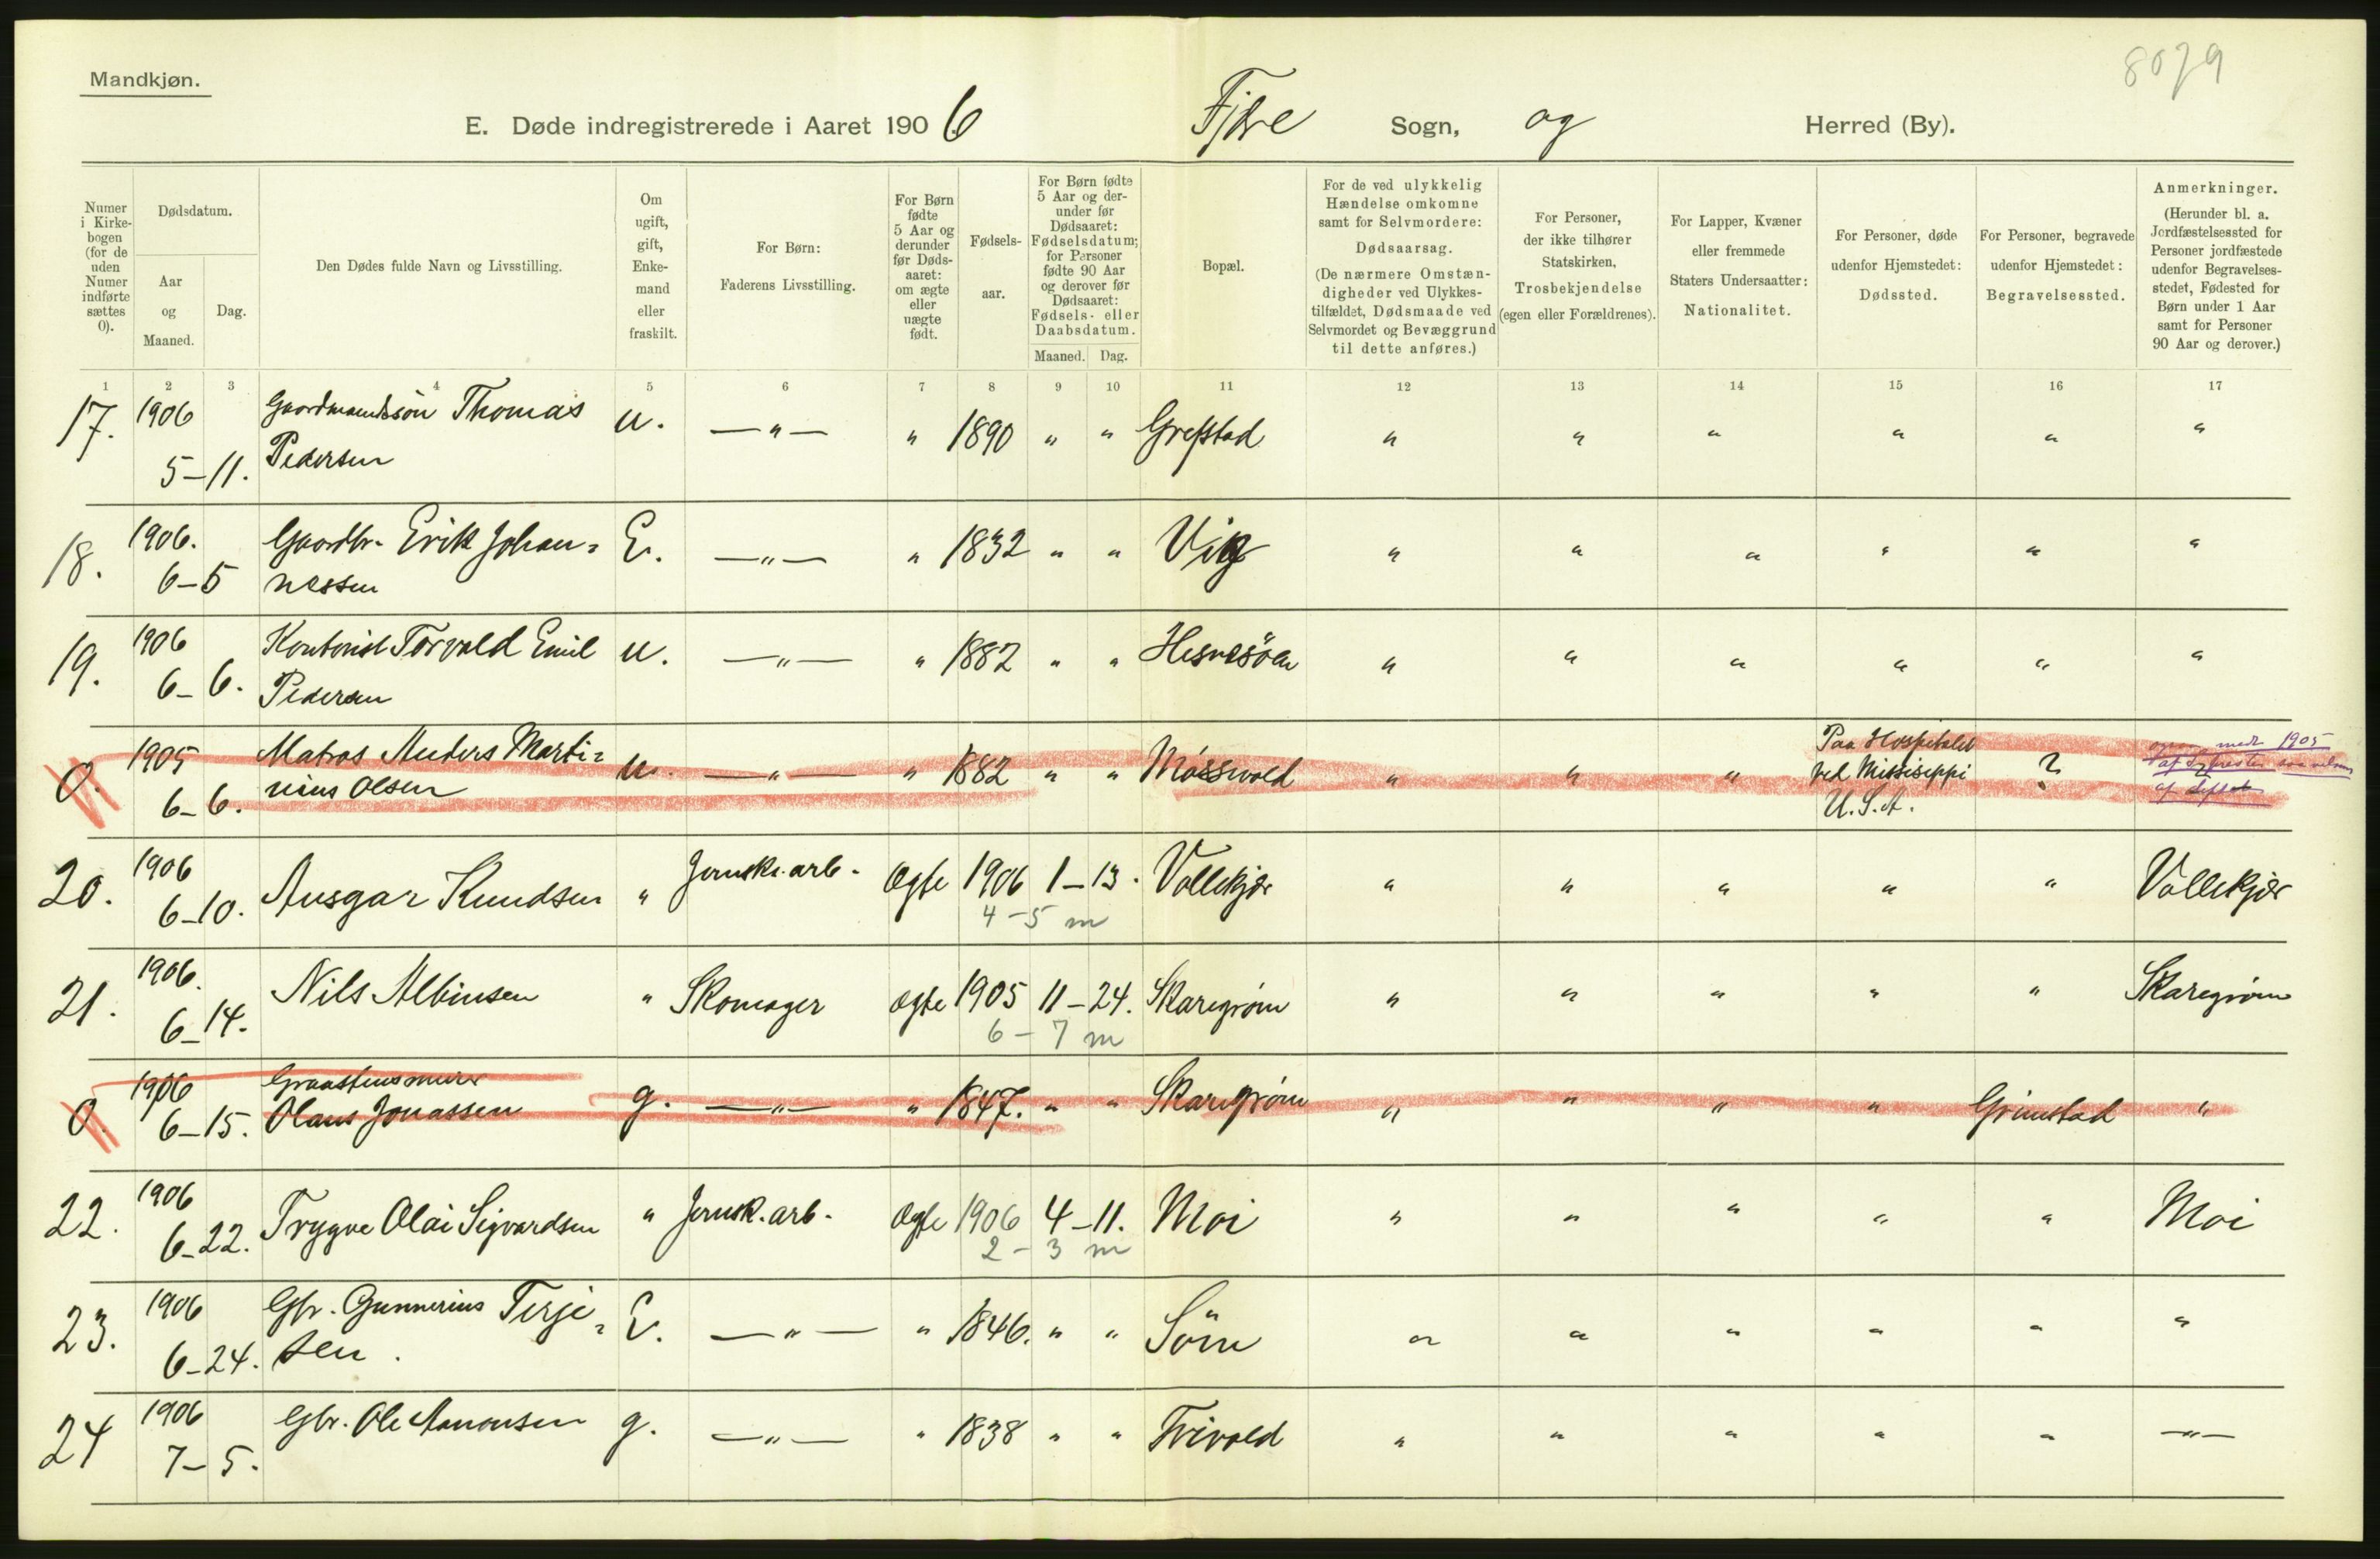 8079
Mandkjøn.
E. Døde indregistrerede i Aaret 1906 Fjære Sogn, og Herred (By).
Numer i Kirkebogen (for de uden Numer indførte sættes 0).
Dødsdatum.
Aar og Maaned.
Dag.
Den Dødes fulde Navn og Livsstilling.
Om ugift, gift, Enkemand eller fraskilt.
For Børn: Faderens Livsstilling.
For Børn fødte 5 Aar og derunder før Dødsaaret: om ægte eller uægte født.
Fødselsaar.
For Børn fødte 5 Aar og derunder før Dødsaaret: Fødselsdatum; for Personer fødte 90 Aar og derover før Dødsaaret: Fødsels- eller Daabsdatum.
Maaned. Dag.
Bopæl.
For de ved ulykkelig Hændelse omkomne samt for Selvmordere: Dødsaarsag. (De nærmere Omstændigheder ved Ulykkestilfældet, Dødsmaade ved Selvmordet og Bevæggrund til dette anføres.)
For Personer, der ikke tilhører Statskirken, Trosbekjendelse (egen eller Forældrenes).
For Lapper, Kvæner eller fremmede Staters Undersaatter: Nationalitet.
For Personer, døde udenfor Hjemstedet: Dødssted.
For Personer, begravede udenfor Hjemstedet: Begravelsessted.
Anmerkninger. (Herunder bl. a. Jordfæstelsessted for Personer jordfæstede udenfor Begravelsesstedet, Fødested for Børn under 1 Aar samt for Personer 90 Aar og derover.)
1 2 3 4 5 6 7 8 9 10 11 12 13 14 15 16 17
17. 1906 5-11. Gaardmandssön Thomas Pedersen u. —"— " 1890 " " Grefstad " " " " " "
18. 1906. 6-5 Gaardbr. Erik Johannessen E. —"— " 1832 " " Vig " " " " " "
19. 1906 6-6. Kontorist Torvald Emil Pedersen u. —"— " 1882 " " Hesnesöen " " " " " "
0. 1905 6-6. Matros Anders Martinius Olsen u. —"— " 1882 " " Mosswold " " " Paa Hospitalet ved Missiseppi U.S.A. ? medt 1905
20. 1906 6-10. Ansgar Knudsen " Jernsk. arb. Ægte 1906 1-13. Vollekjær " " " " " Vollekjær
4-5 m
21. 1906. 6-14. Nils Albinsen " Skomager ægte 1905 11-24. Skaregrøm " " " " " Skaregrøm
6-7 m
0. 1906 6-15. Graastensmurer Olaus Jonassen g. —"— " 1847. " " Skaregrøm " " " " Grimstad "
22. 1906 6-22. Trygve Olai Sigvardsen " Jernsk. arb. Ægte 1906 4-11. Moi " " " " " Moi
2-3 m
23. 1906 6-24. Gbr. Gunnerius Terjesen. E. —"— " 1846. " " Söm " " " " " "
24 1906 7-5. Gbr. Ole Aanonsen g. —"— " 1838 " " Frivold " " " " " —"—